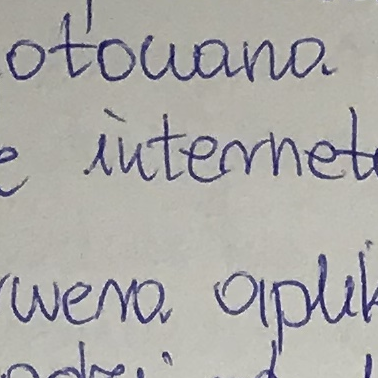 otowana.
e internet
wera aplik